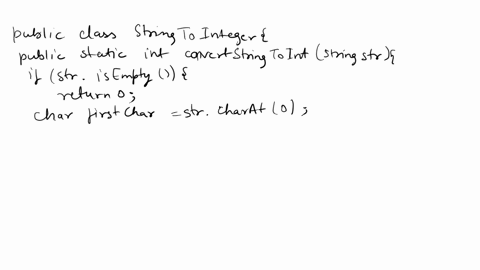 public class StringToInteger{
public static int convertStringToInt (string str){
if (str. isEmpty ()) {
return 0;
char firstChar = str. charAt (0);